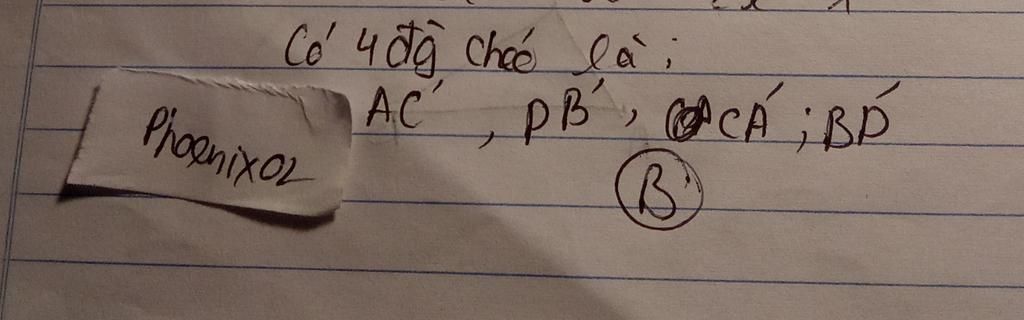 Có 4 đg̀ chéo là;
AC', DB', CA'; BD'
Phoenix02
B